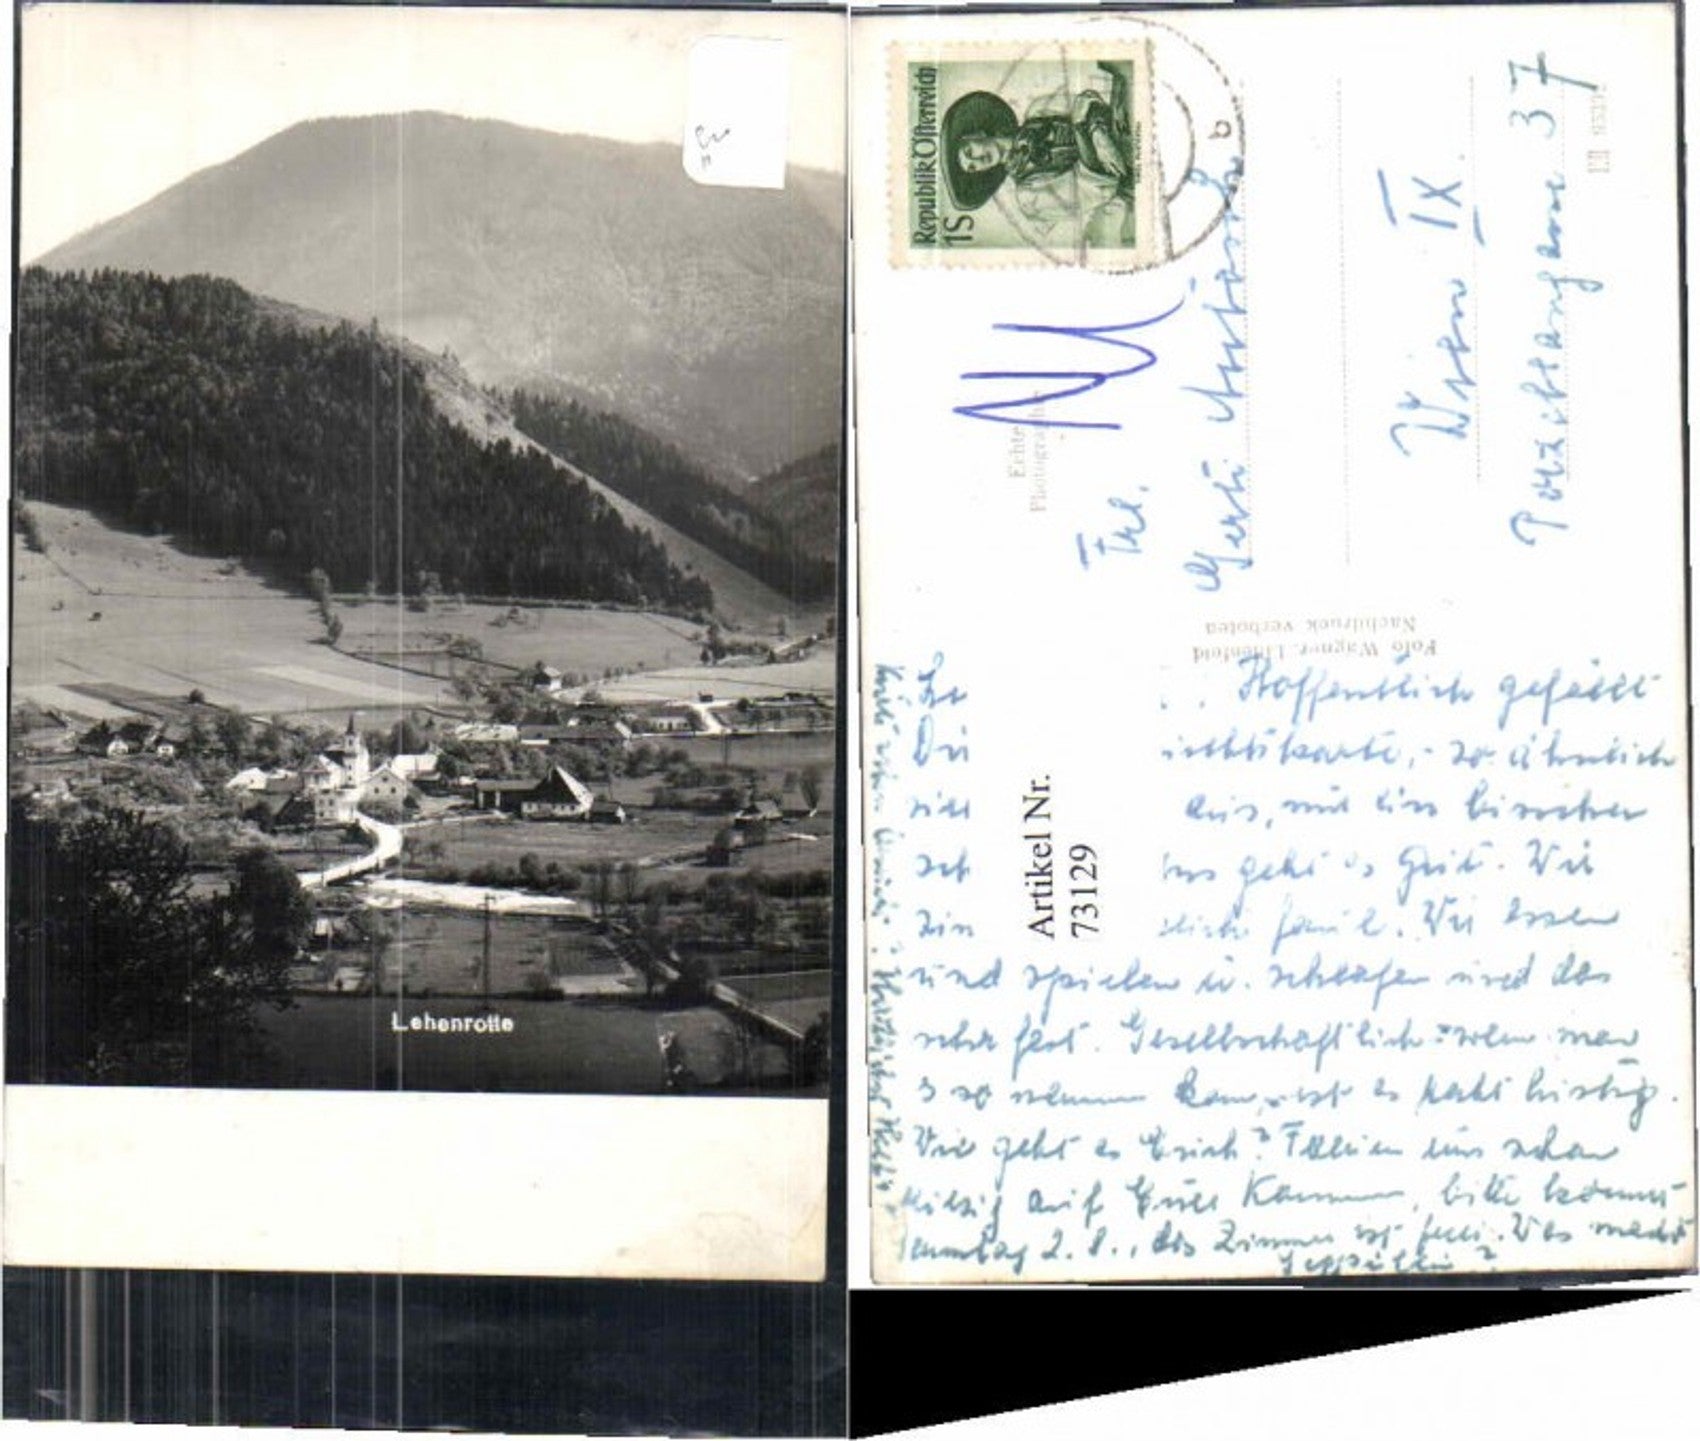 Lehenrotte
Republik Österreich
1S
b
Echte
Photographie
Frl.
Gerti
Wien IX.
Porzellangasse 37
Foto Wagner, Lilienfeld
Nachdruck verboten
Artikel Nr.
73129
Hoffentlich gefällt
Dir
so ähnlich
aus, nur ein bisschen
geht es gut. Wir
sind faul. Wir essen
und spielen u. schlafen und das
sehr fest. Gesellschaftlich - wenn man
es so nennen kann, ist es recht lustig.
Wie geht es Erich? Freuen uns schon
riesig auf Euer Kommen, bitte kommt
Samstag 2.8., das Zimmer ist frei. Was macht